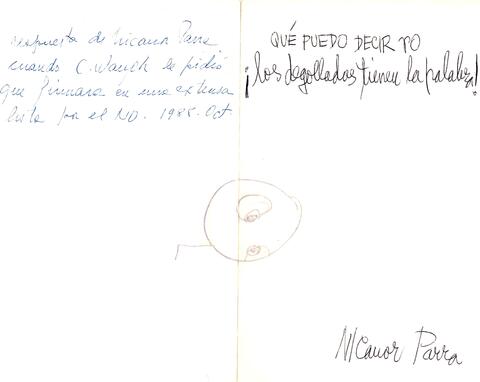 respuesta de Nicanor Parra
cuando C. Wauch le pidió
que firmara en una extensa
lista por el NO. 1988. Oct.
QUÉ PUEDO DECIR YO
¡los degollados tienen la palabra!
NICanor Parra